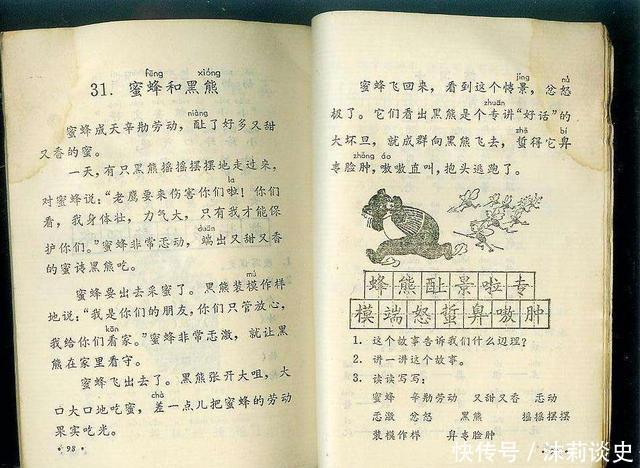 fēng xióng
31. 蜜蜂和黑熊
niàng
蜜蜂成天辛勤劳动，酿了好多又甜
又香的蜜。
一天，有只黑熊摇摇摆摆地走过来，
la
对蜜蜂说：“老鹰要来伤害你们啦！你们
看，我身体壮，力气大，只有我才能保
duān
护你们。”蜜蜂非常感动，端出又甜又香
的蜜请黑熊吃。
mú
蜜蜂要出去采蜜了。黑熊装模作样
地说：“我是你们的朋友，你们只管放心，
kān
我给你们看家。”蜜蜂非常感激，就让黑
熊在家里看守。
蜜蜂飞出去了。黑熊张开大咀，大
chà
口大口地吃蜜，差一点儿把蜜蜂的劳动
果实吃光。
·98·
jǐng nù
蜜蜂飞回来，看到这个情景，忿怒
zhuān
极了。它们看出黑熊是个专讲“好话”的
zhē bí
大坏旦，就成群向黑熊飞去，蜇得它鼻
zhǒng áo
青脸肿，嗷嗷直叫，抱头逃跑了。
蜂熊酿景啦专
模端怒蜇鼻嗷肿
1. 这个故事告诉我们什么道理？
2. 讲一讲这个故事。
3. 读读写写：
蜜蜂 辛勤劳动 又甜又香 感动
感激 忿怒 黑熊 摇摇摆摆
装模作样 鼻青脸肿
快传号／沫莉谈史